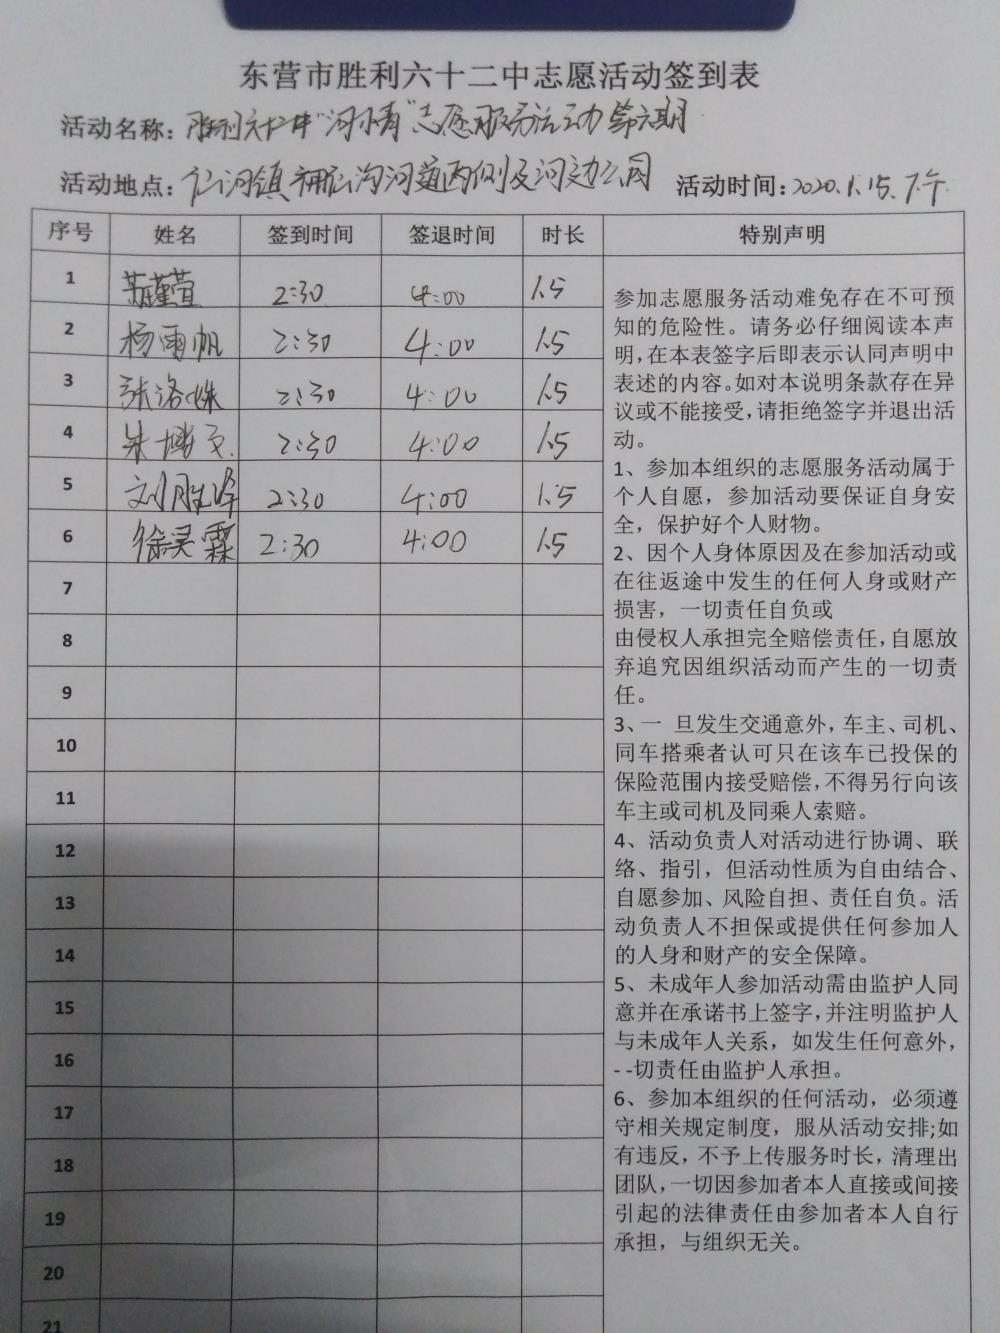 东营市胜利六十二中志愿活动签到表
活动名称：胜利六十二中“河小青”志愿服务活动第六期
活动地点：仁河镇 河道两侧及河边公园 活动时间：2020.1.15.下午
序号 姓名 签到时间 签退时间 时长 特别声明
1 2:30 4:00 1.5
2 杨雨帆 2:30 4:00 1.5
3 张洛姝 2:30 4:00 1.5
4 朱博文 2:30 4:00 1.5
5 刘胜 2:30 4:00 1.5
6 徐昊霖 2:30 4:00 1.5
7
8
9
10
11
12
13
14
15
16
17
18
19
20
21
参加志愿服务活动难免存在不可预
知的危险性。请务必仔细阅读本声
明，在本表签字后即表示认同声明中
表述的内容。如对本说明条款存在异
议或不能接受，请拒绝签字并退出活
动。
1、参加本组织的志愿服务活动属于
个人自愿，参加活动要保证自身安
全，保护好个人财物。
2、因个人身体原因及在参加活动或
在往返途中发生的任何人身或财产
损害，一切责任自负或
由侵权人承担完全赔偿责任，自愿放
弃追究因组织活动而产生的一切责
任。
3、一 旦发生交通意外，车主、司机、
同车搭乘者认可只在该车已投保的
保险范围内接受赔偿，不得另行向该
车主或司机及同乘人索赔。
4、活动负责人对活动进行协调、联
络、指引，但活动性质为自由结合、
自愿参加、风险自担、责任自负。活
动负责人不担保或提供任何参加人
的人身和财产的安全保障。
5、未成年人参加活动需由监护人同
意并在承诺书上签字，并注明监护人
与未成年人关系，如发生任何意外，
- -切责任由监护人承担。
6、参加本组织的任何活动，必须遵
守相关规定制度，服从活动安排;如
有违反，不予上传服务时长，清理出
团队，一切因参加者本人直接或间接
引起的法律责任由参加者本人自行
承担，与组织无关。